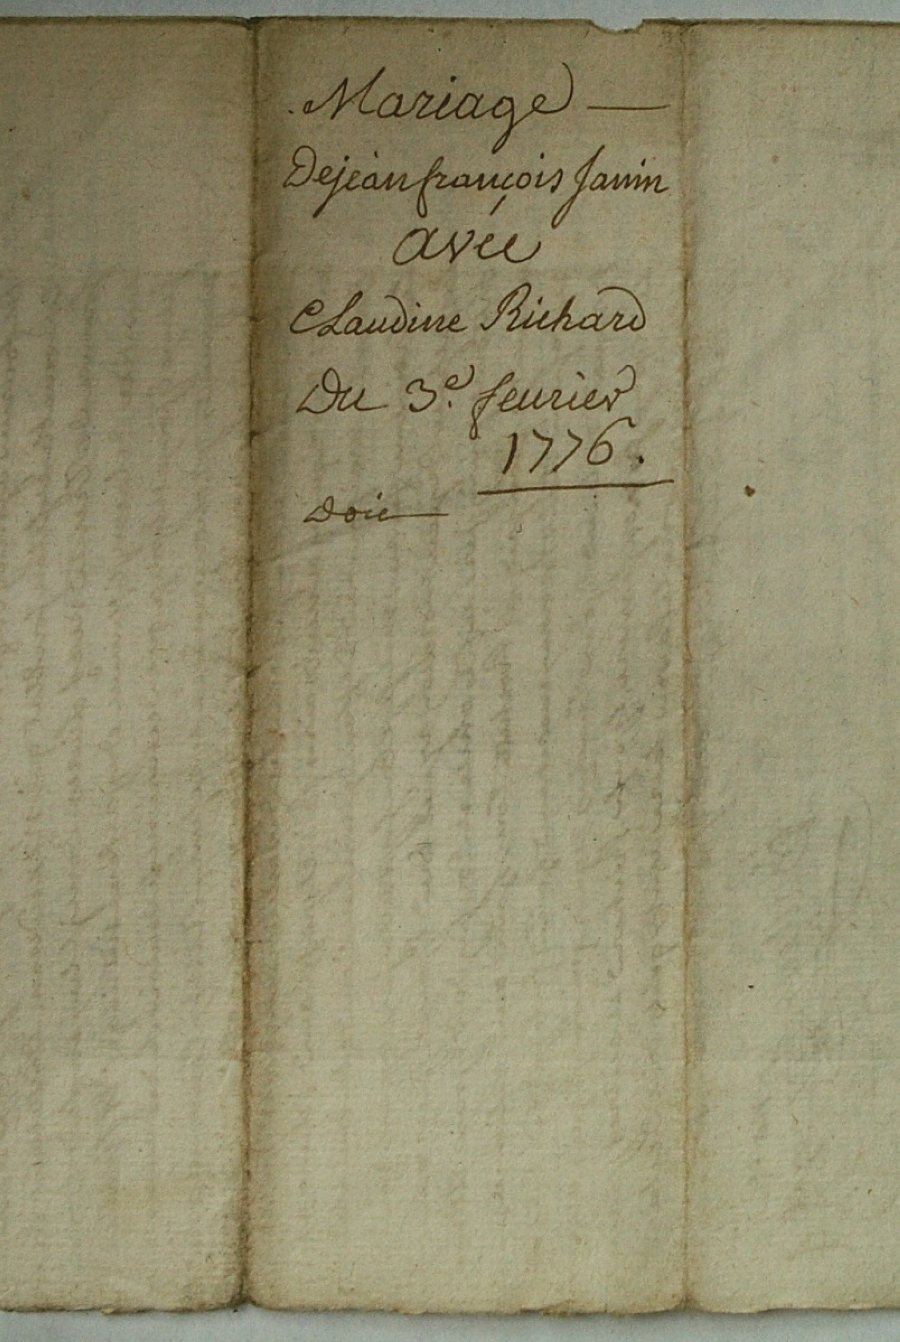 Mariage —
De jean françois Janin
avec
Claudine Richard
Du 3e. feurier
1776.
Doit